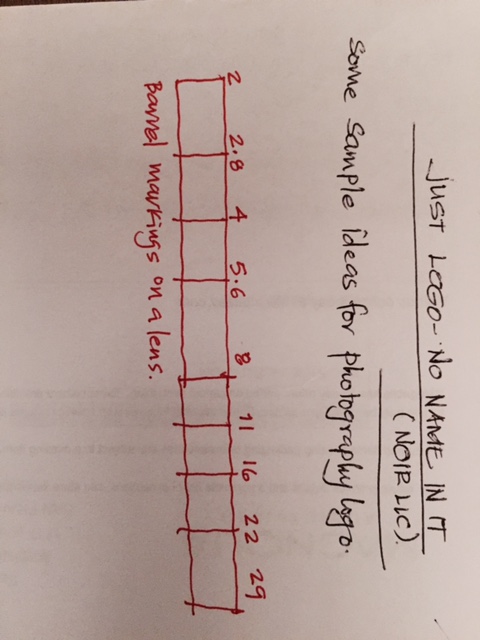 JUST LOGO - NO NAME IN IT
(NOIR LIC).
Some sample ideas for photography logo.
2 2.8 4 5.6 8 11 16 22 29
Barrel markings on a lens.